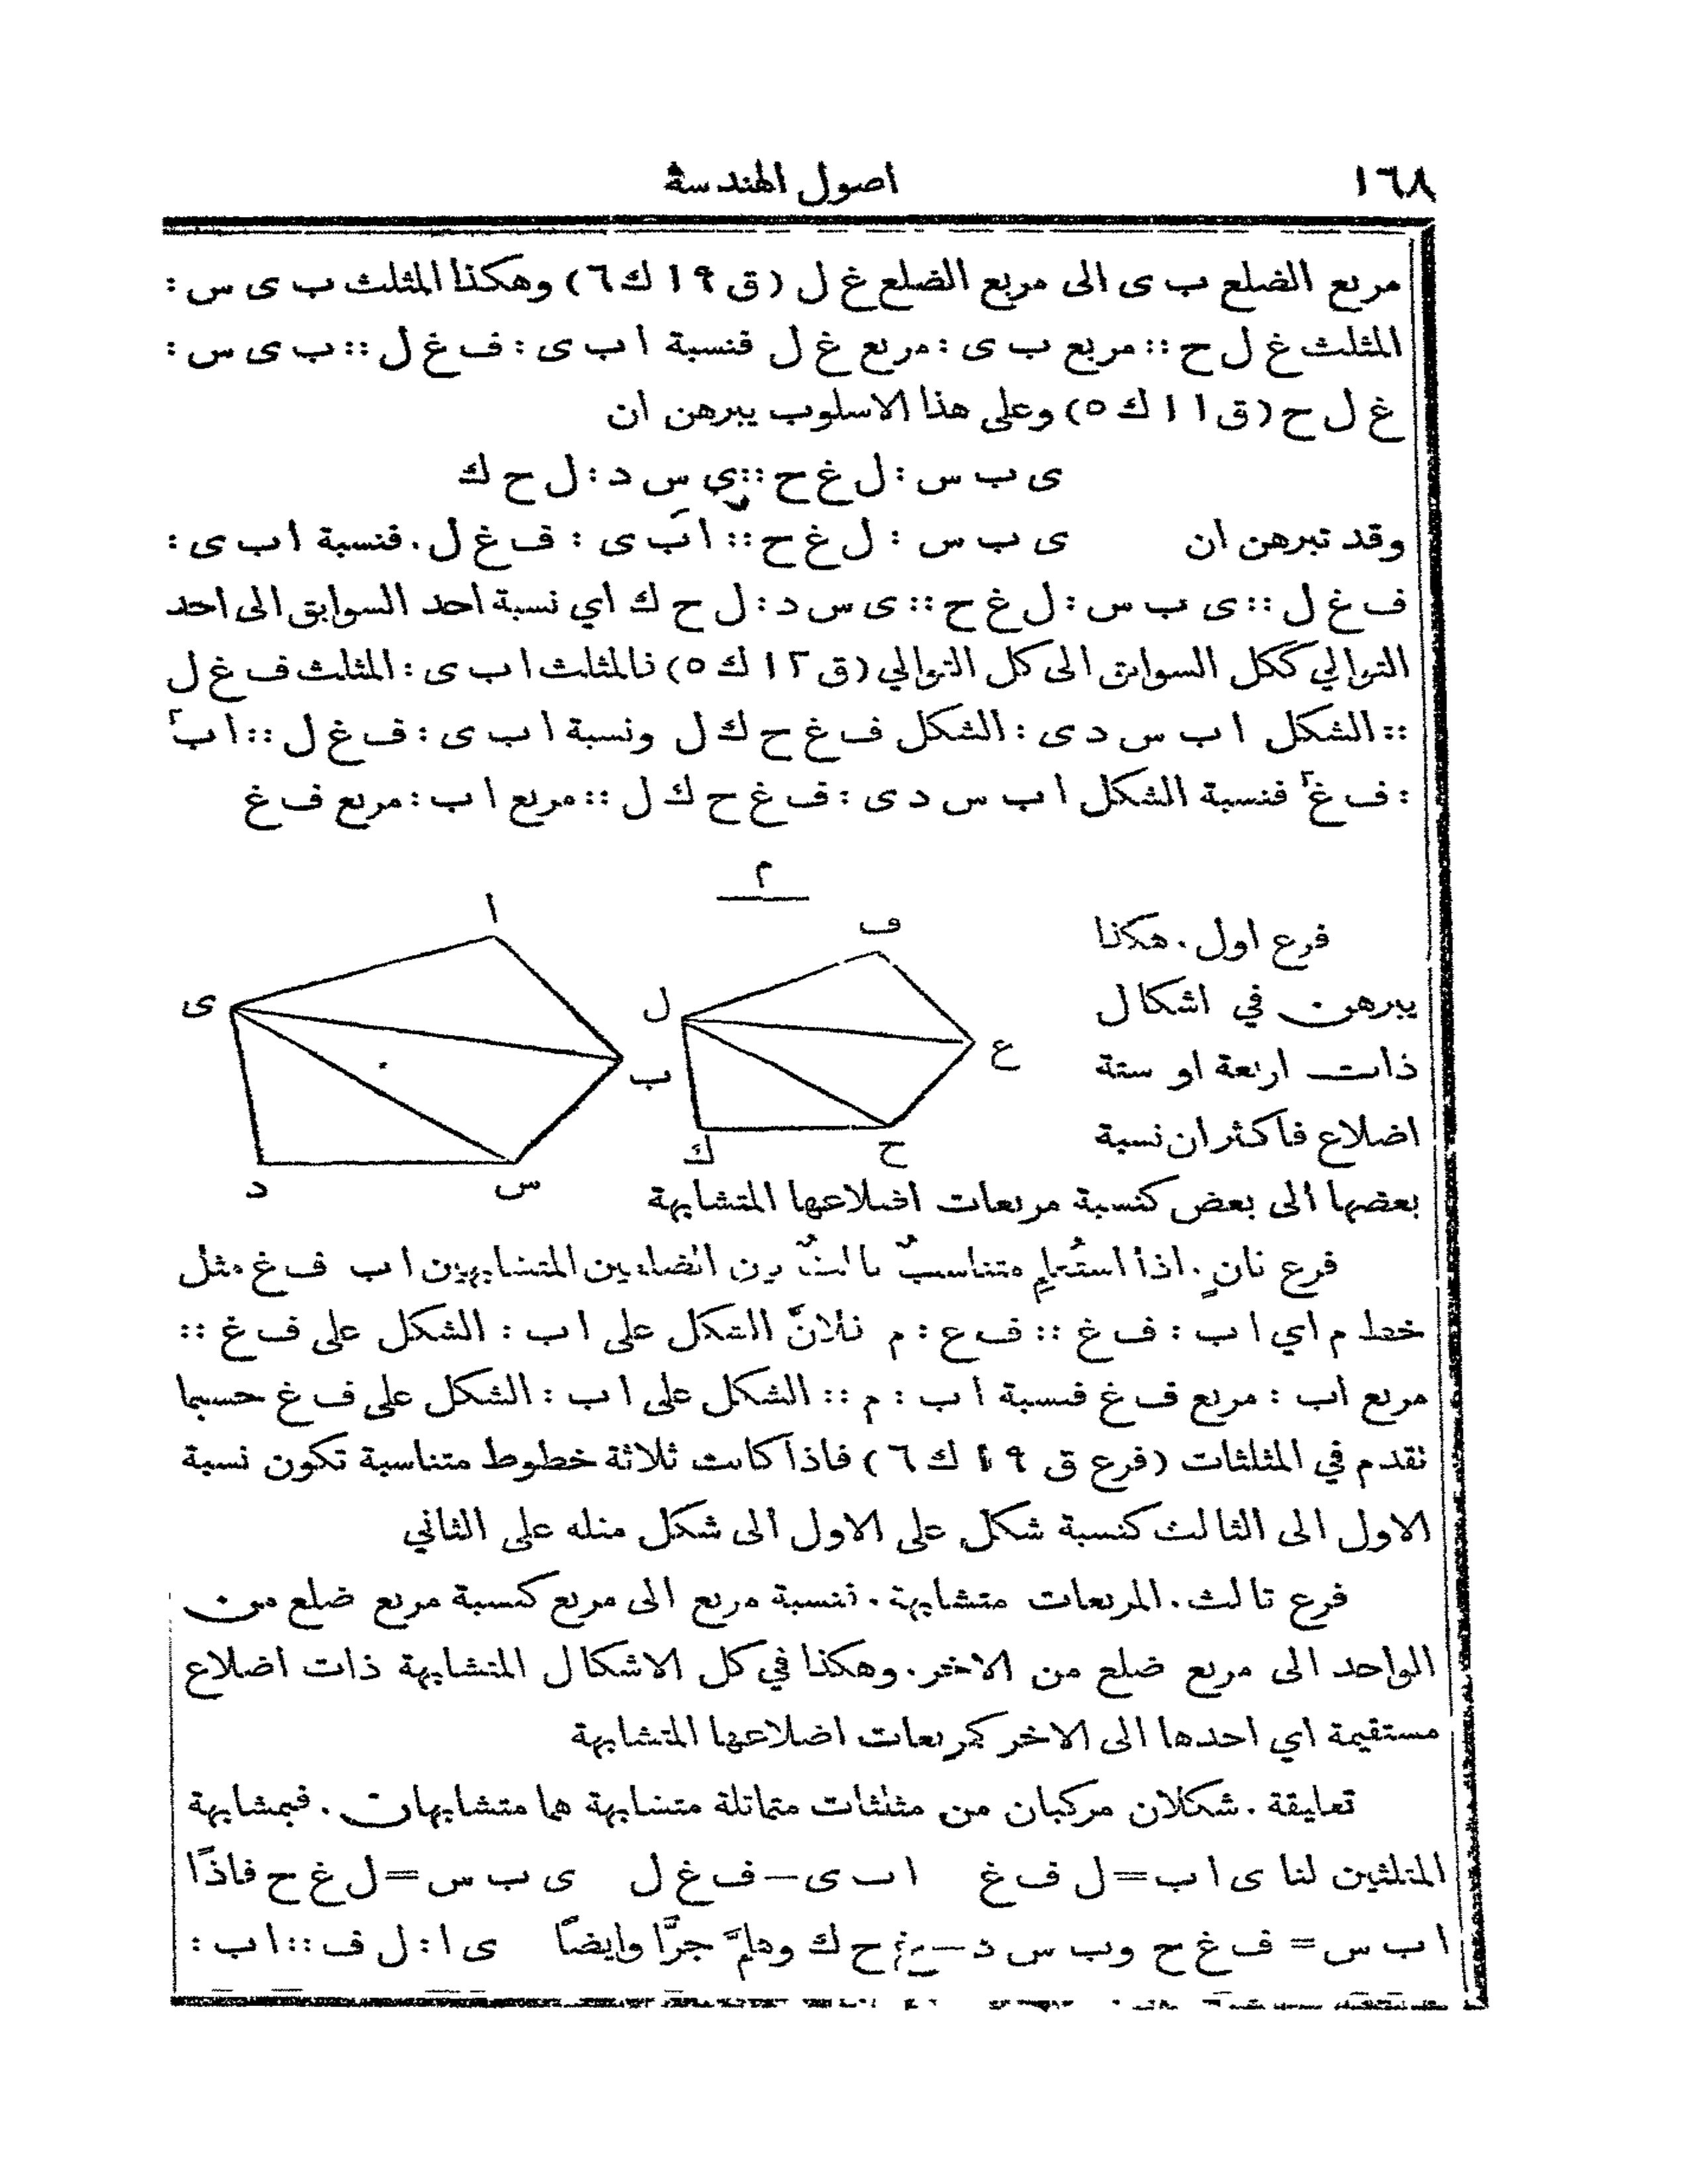 ١٦٨
اصول الهندسة
مربع الضلع ب ى الى مربع الضلع غ ل (ق ١٩ ك ٦) وهكذا المثلث ب ى س :
المثلث غ ل ح :: مربع ب ى : مربع غ ل فنسبة ا ب ى : ف غ ل :: ب ى س :
غ ل ح (ق ١١ ك ٥) وعلى هذا الاسلوب يبرهن ان
ى ب س : ل غ ح :: ى س د : ل ح ك
وقد تبرهن ان ى ب س : ل غ ح :: ا ب ى : ف غ ل . فنسبة ا ب ى :
ف غ ل :: ى ب س : ل غ ح :: ى س د : ل ح ك اي نسبة احد السوابق الى احد
التوالي ككل السوابق الى كل التوالي (ق ١٢ ك ٥) فالمثلث ا ب ى : المثلث ف غ ل
:: الشكل ا ب س د ى : الشكل ف غ ح ك ل ونسبة ا ب ى : ف غ ل :: ا ب٢
: ف غ٢ فنسبة الشكل ا ب س د ى : ف غ ح ك ل :: مربع ا ب : مربع ف غ
م
ا
ف
ى
ل
ع
ب
ك
ح
د
س
فرع اول . هكذا
يبرهن في اشكال
ذات اربعة او ستة
اضلاع فاكثر ان نسبة
بعضها الى بعض كنسبة مربعات اضلاعها المتشابهة
فرع ثانٍ . اذا استُعلِم متناسبٌ ثالثٌ بين الضلعين المتشابهين ا ب ف غ مثل
خط م اي ا ب : ف غ :: ف ع : م فلانَّ الشكل على ا ب : الشكل على ف غ ::
مربع اب : مربع ف غ فنسبة ا ب : م :: الشكل على ا ب : الشكل على ف غ حسبما
تقدم في المثلثات (فرع ق ١٩ ك ٦) فاذا كانت ثلاثة خطوط متناسبة تكون نسبة
الاول الى الثالث كنسبة شكل على الاول الى شكل مثله على الثاني
فرع ثالث . المربعات متشابهة . فنسبة مربع الى مربع كنسبة مربع ضلع من
الواحد الى مربع ضلع من الاخر . وهكذا في كل الاشكال المتشابهة ذات اضلاع
مستقيمة اي احدها الى الاخر كمربعات اضلاعها المتشابهة
تعليقة . شكلان مركبان من مثلثات متماثلة متشابهة هما متشابهان . فبمشابهة
المثلثين لنا ى ا ب = ل ف غ ا ب ى = ف غ ل ى ب س = ل غ ح فاذًا
ا ب س = ف غ ح وب س د = غ ح ك وهلمَّ جرًّا وايضًا ى ا : ل ف :: ا ب :